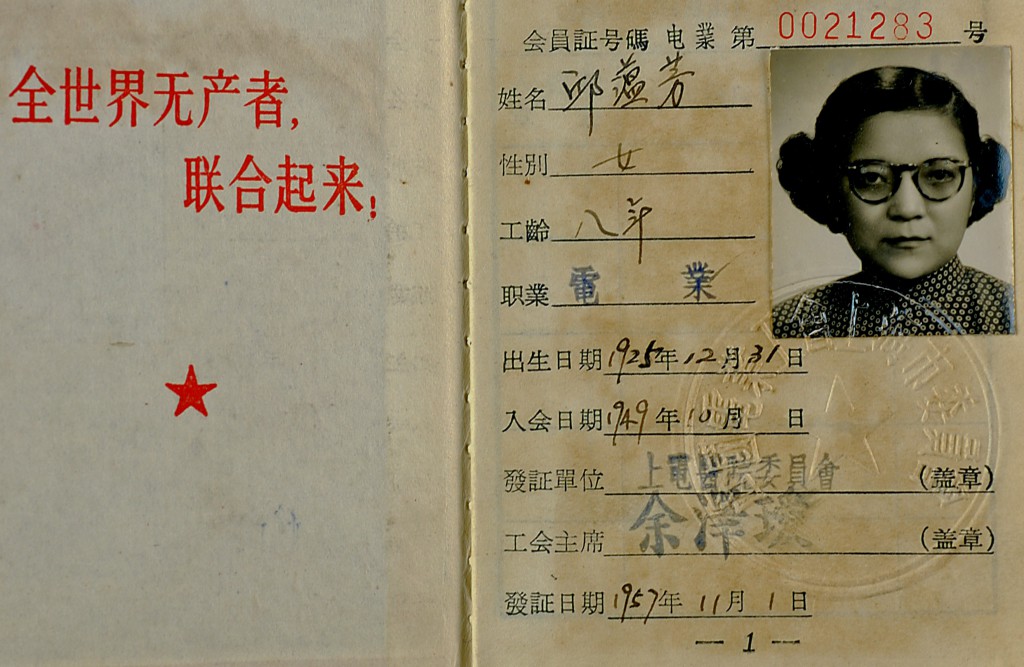 全世界无产者,
联合起来!
会員証号碼 电業 第 0021283 号
姓名 邱蕴芳
性別 女
工齡 八年
职業 電業
出生日期 1925年12月31日
入会日期 1949年10月 日
發証單位 上電醫院委員會 (盖章)
工会主席 余澤 (盖章)
發証日期 1957年11月1日
— 1 —